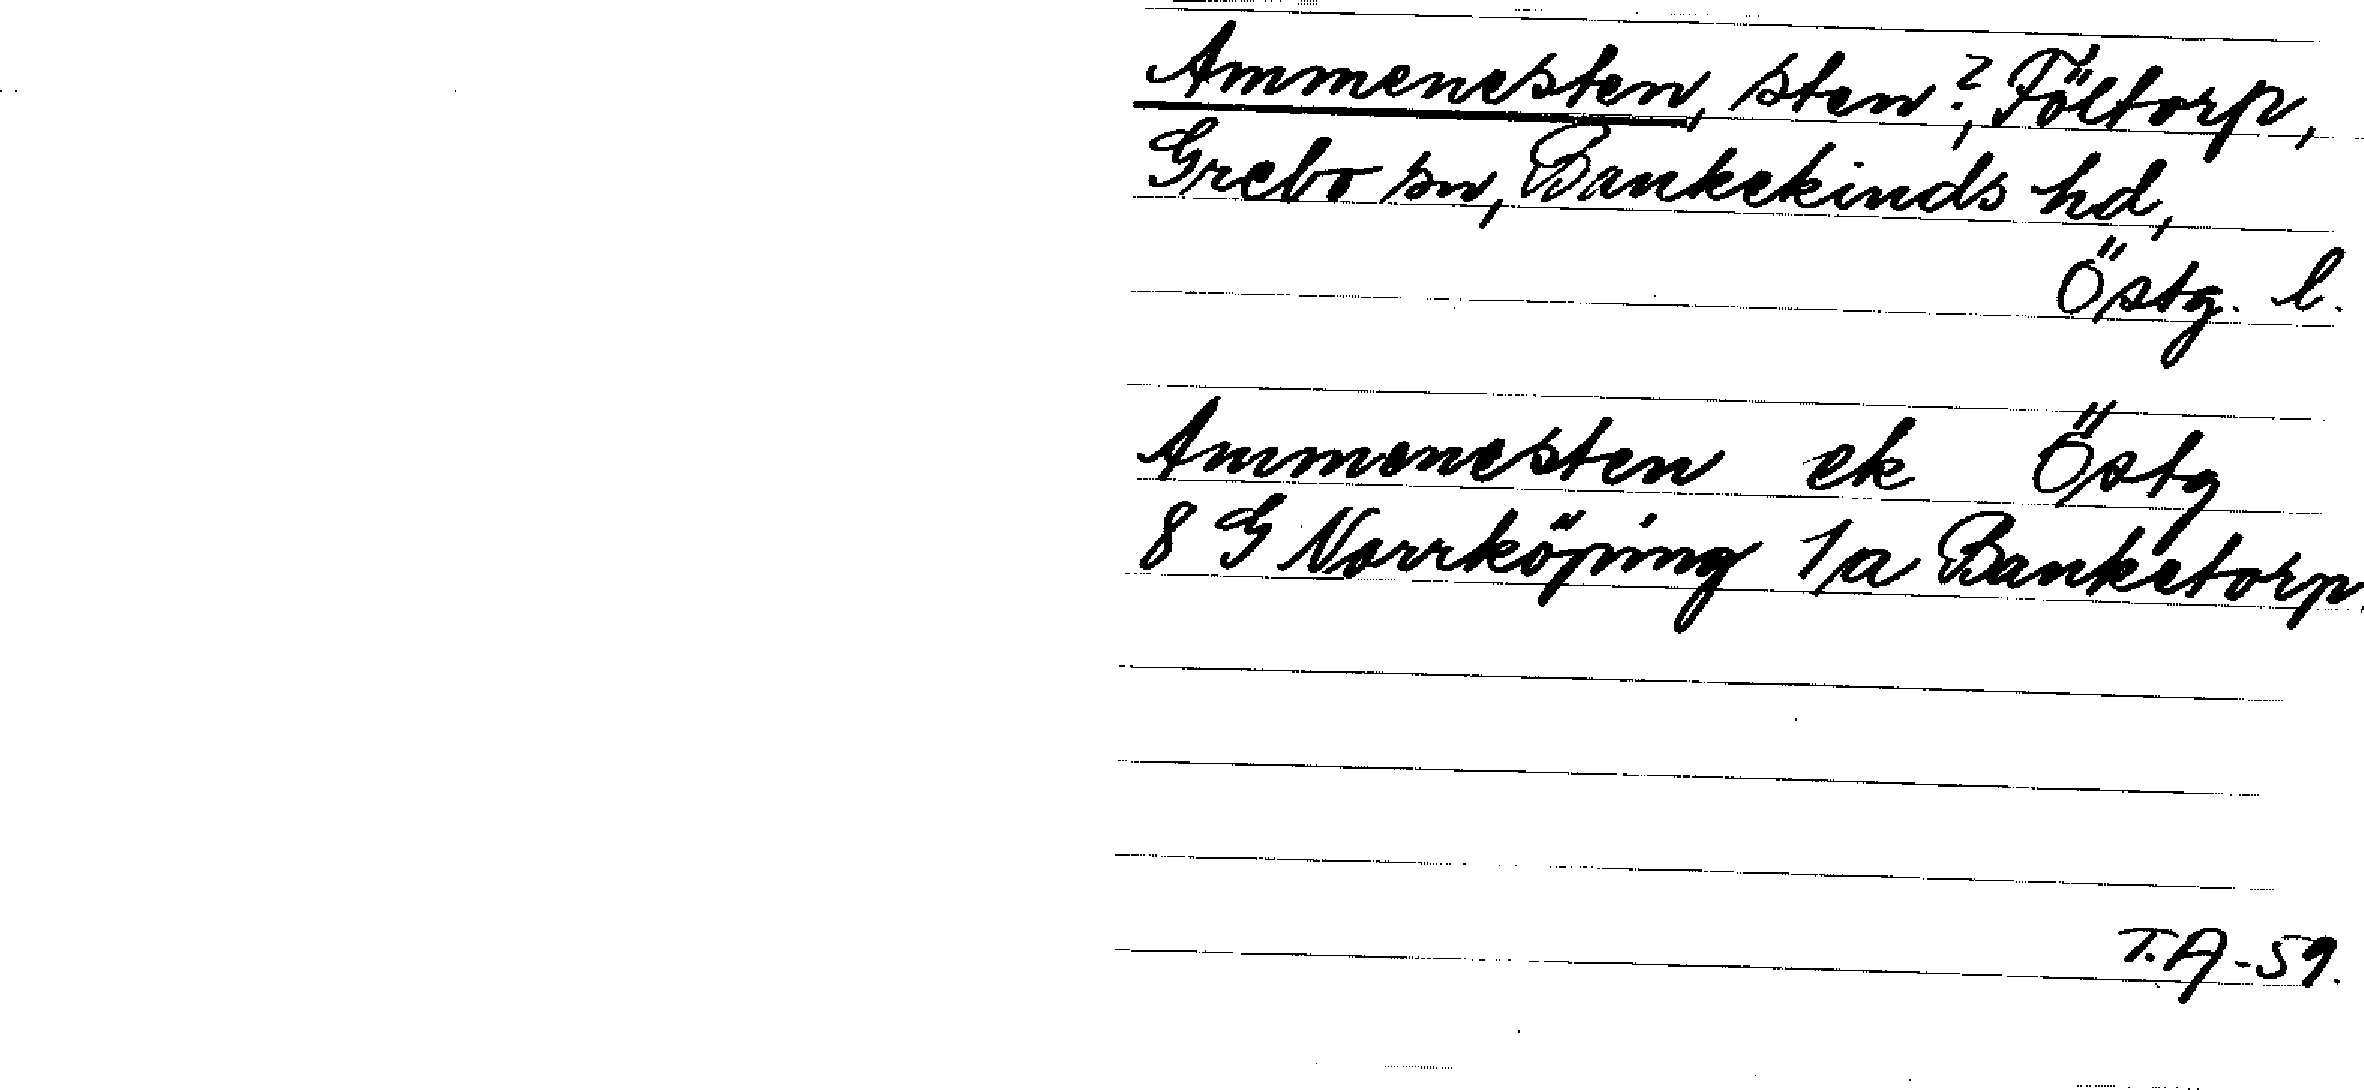 Ammenesten, sten?, Föltorp,
Grebo sn, Bankekinds hd,
Östg. l.
Ammenesten ek Östg
8 G Norrköping 1a Banketorp.
T.A-59.